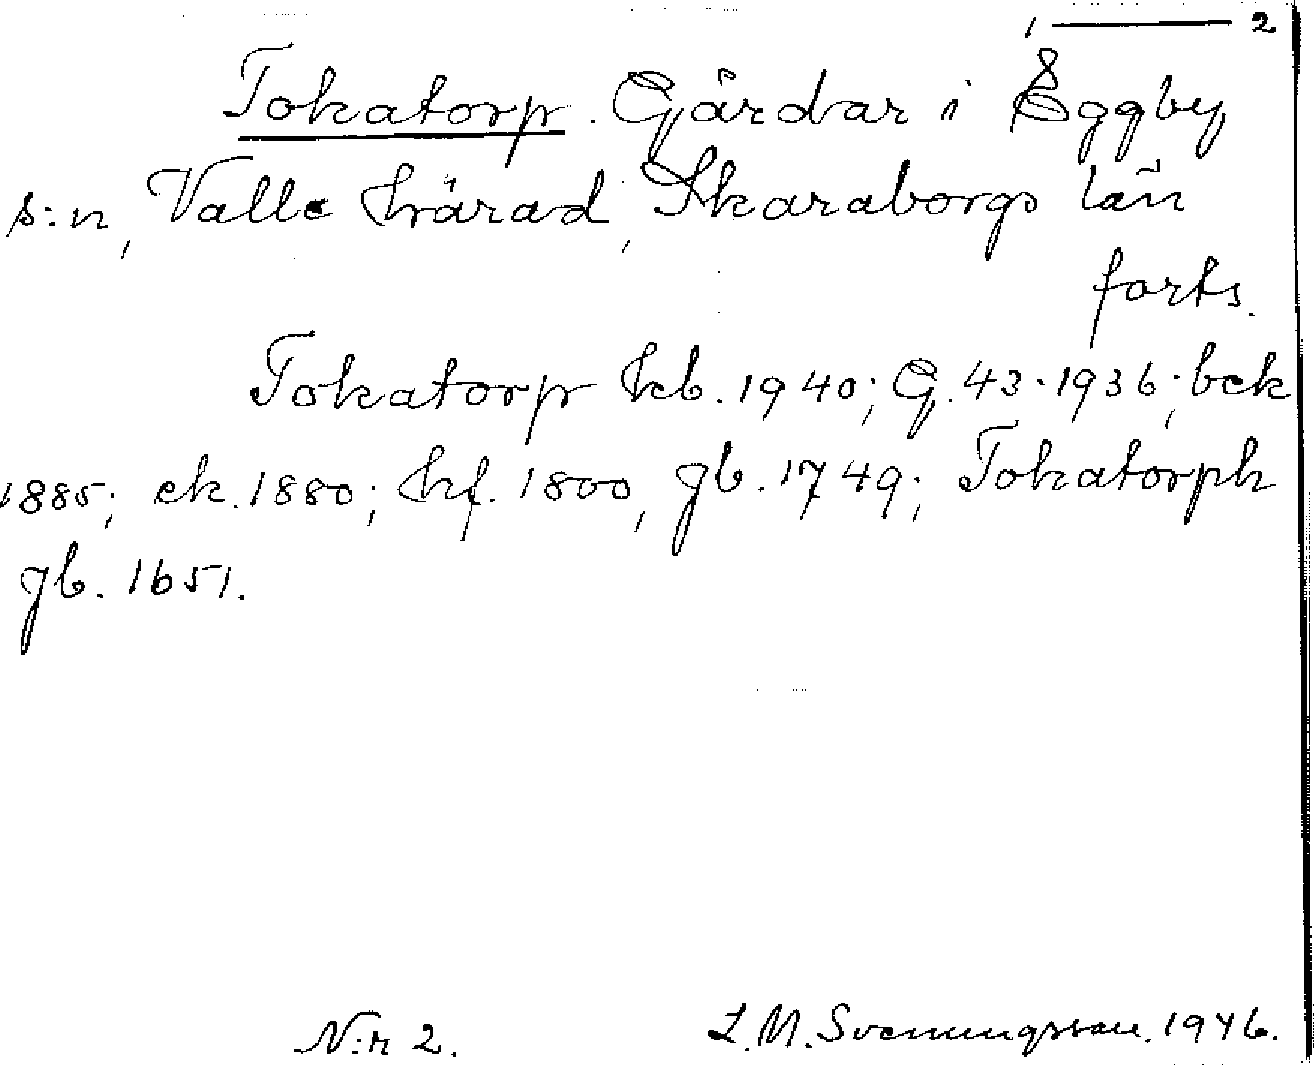 1 — 2
Tokatorp. Gårdar i Eggby
s:n, Valle härad, Skaraborgs län
forts.
Tokatorp hb. 1940; G. 43. 1936; bek
1885; ek. 1880; hf. 1800, gb. 1749; Tokatorph
gb. 1651.
N:r 2. L.M. Svenungsson. 1946.